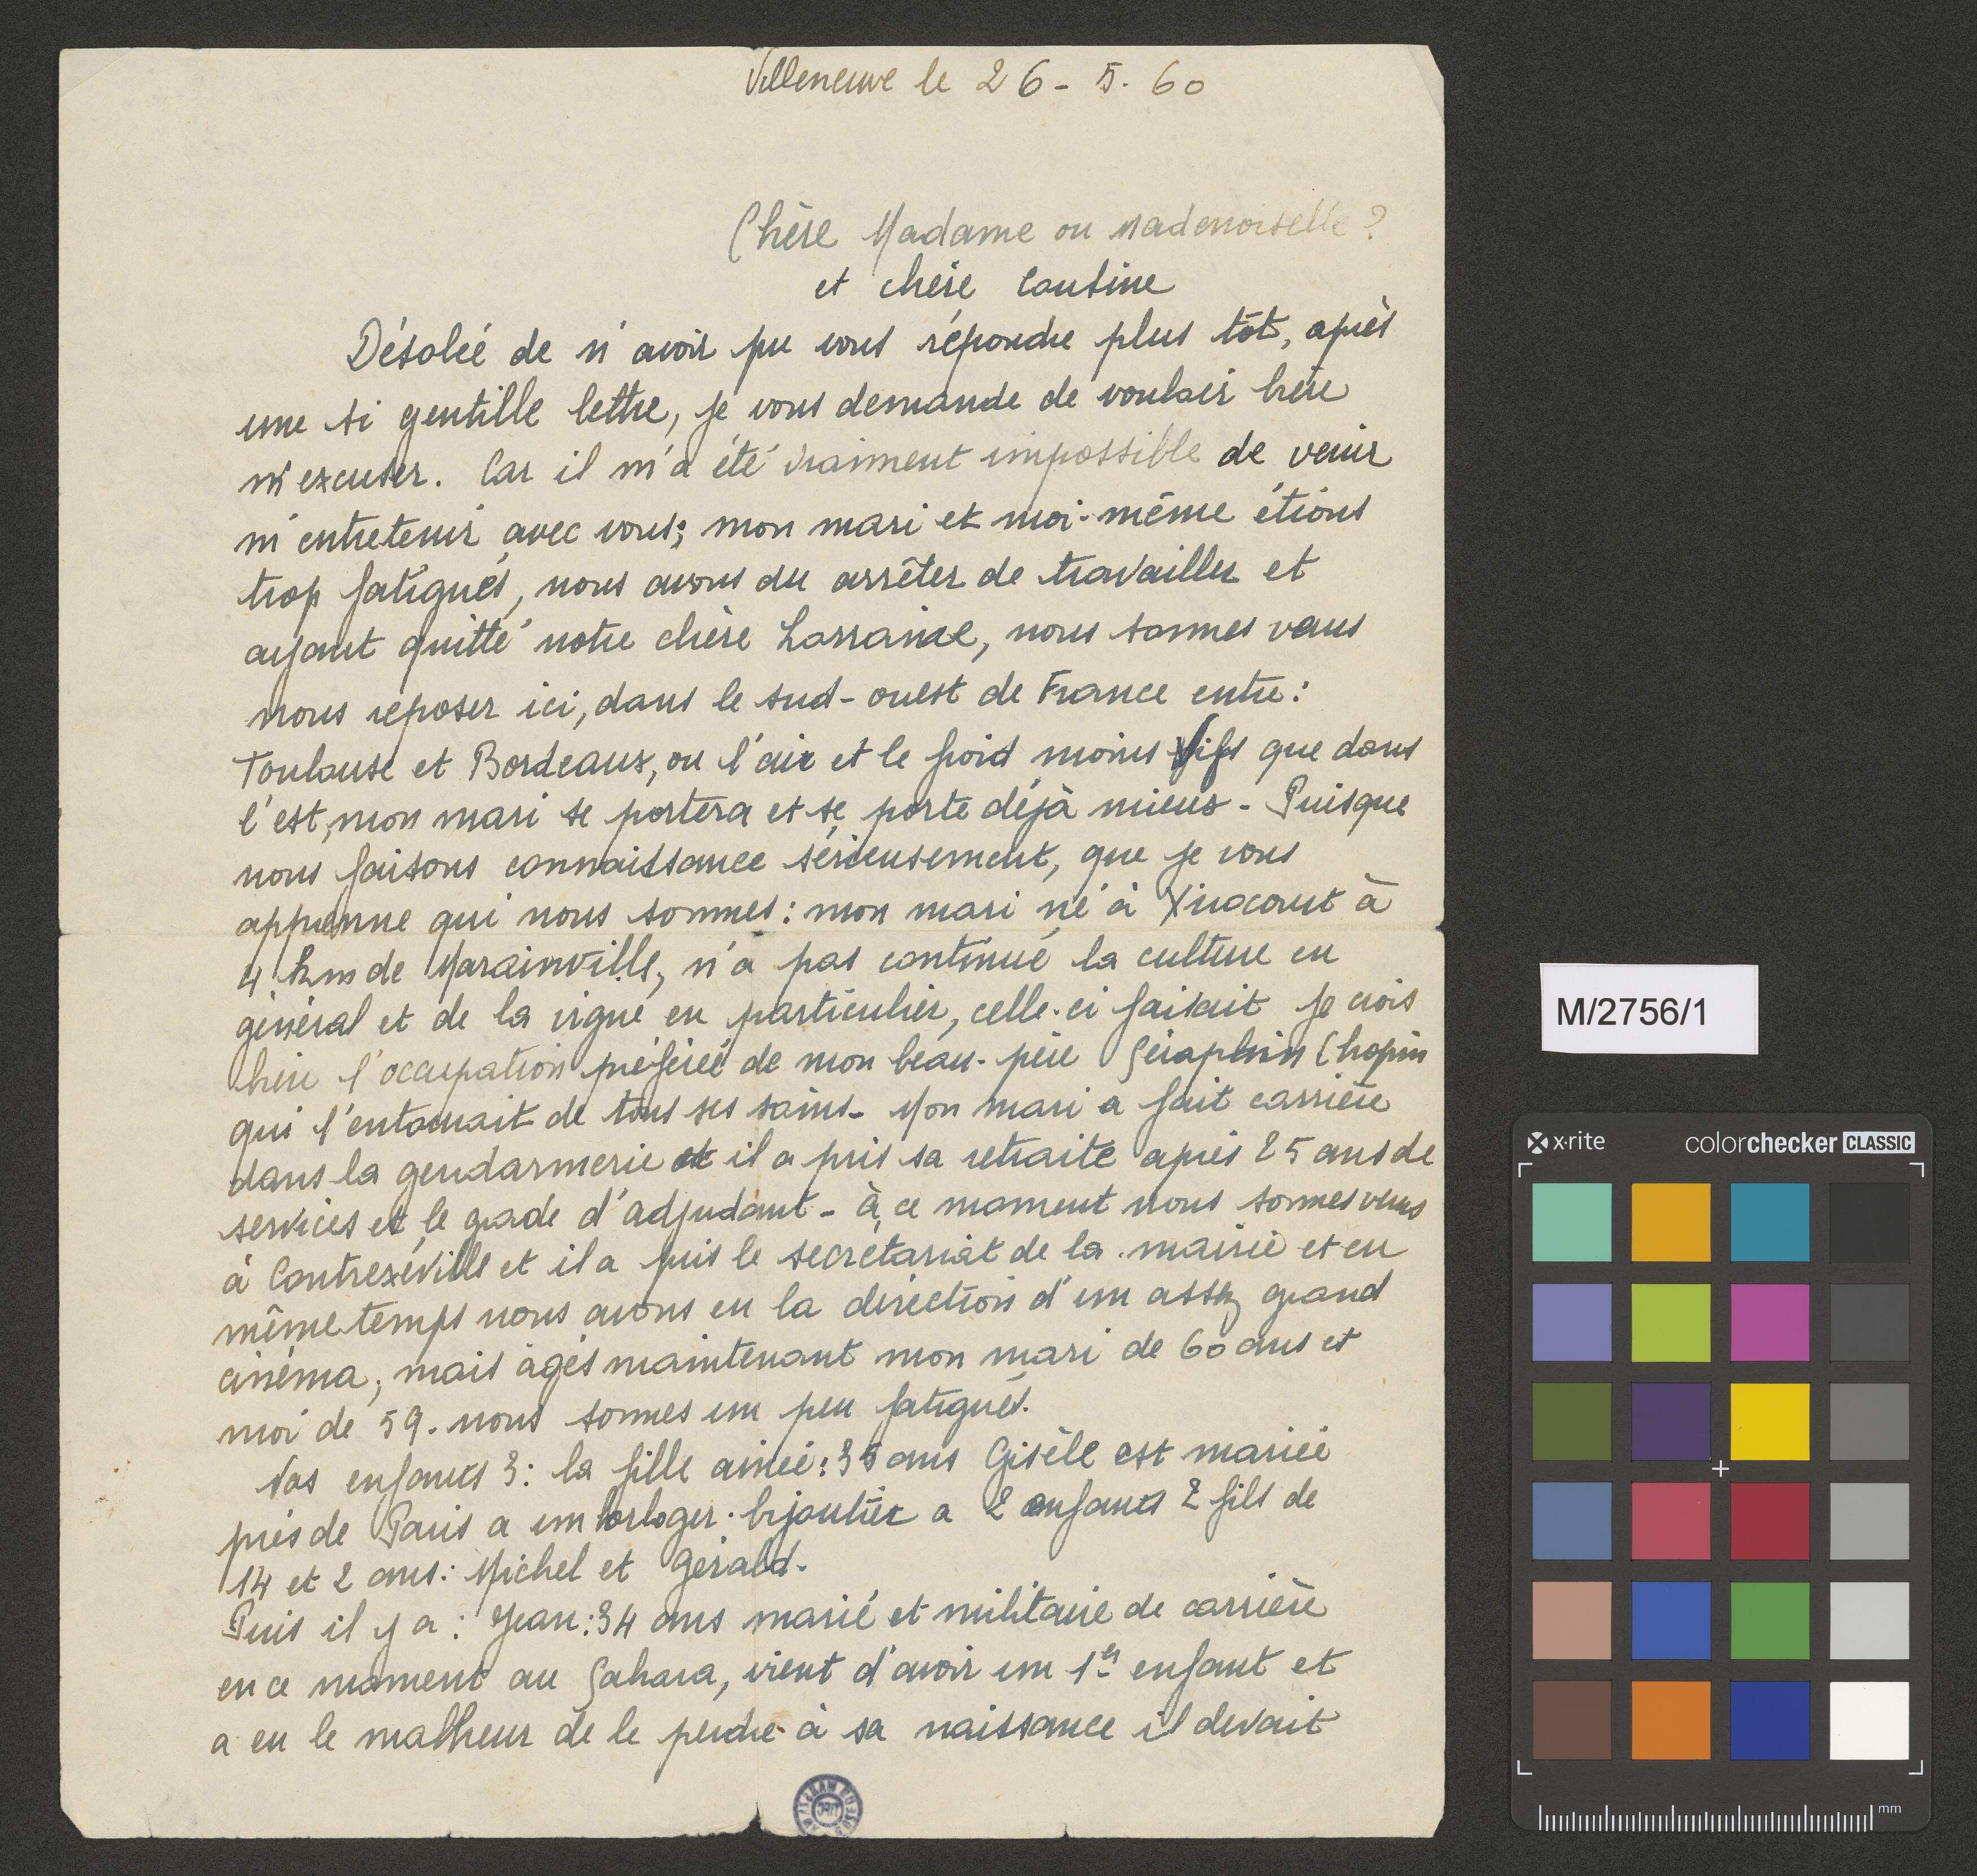 Villeneuve le 26 - 5. 60
Chère Madame ou Mademoiselle ?
et chère Cousine
Désolée de n'avoir pu vous répondre plus tôt, après
une si gentille lettre, je vous demande de vouloir bien
m'excuser. Car il m'a été vraiment impossible de venir
m'entretenir avec vous; mon mari et moi-même étions
trop fatigués, nous avons du arrêter de travailler et
ayant quitté notre chère Lorraine, nous sommes venus
nous reposer ici, dans le sud-ouest de France entre:
Toulouse et Bordeaux, ou l'air et le froid moins vifs que dans
l'est, mon mari se portera et se porte déjà mieux - Puisque
nous faisons connaissance sérieusement, que je vous
apprenne qui nous sommes: mon mari né à Xirocourt à
4 kms de Marainville, n'a pas continué la culture en
général et de la vigne en particulier, celle-ci faisait je crois
bien l'occupation préférée de mon beau-père Séraphin Chopin
qui l'entourait de tous ses soins - Mon mari a fait carrière
dans la gendarmerie et il a pris sa retraite après 25 ans de
services et le grade d'adjudant - à ce moment nous sommes venus
à Contrexéville et il a pris le secrétariat de la mairie et en
même temps nous avons eu la direction d'un assez grand
cinéma; mais âgés maintenant mon mari de 60 ans et
moi de 59. nous sommes un peu fatigués.
Nos enfants 3: la fille ainée: 35 ans Gisèle est mariée
près de Paris a un horloger-bijoutier a 2 enfants 2 fils de
14 et 2 ans: Michel et Gérald.
Puis il y a: Jean: 34 ans marié et militaire de carrière
en ce moment au Sahara, vient d'avoir un 1er enfant et
a eu le malheur de le perdre à sa naissance il devait
M/2756/1
x-rite
colorchecker CLASSIC
mm